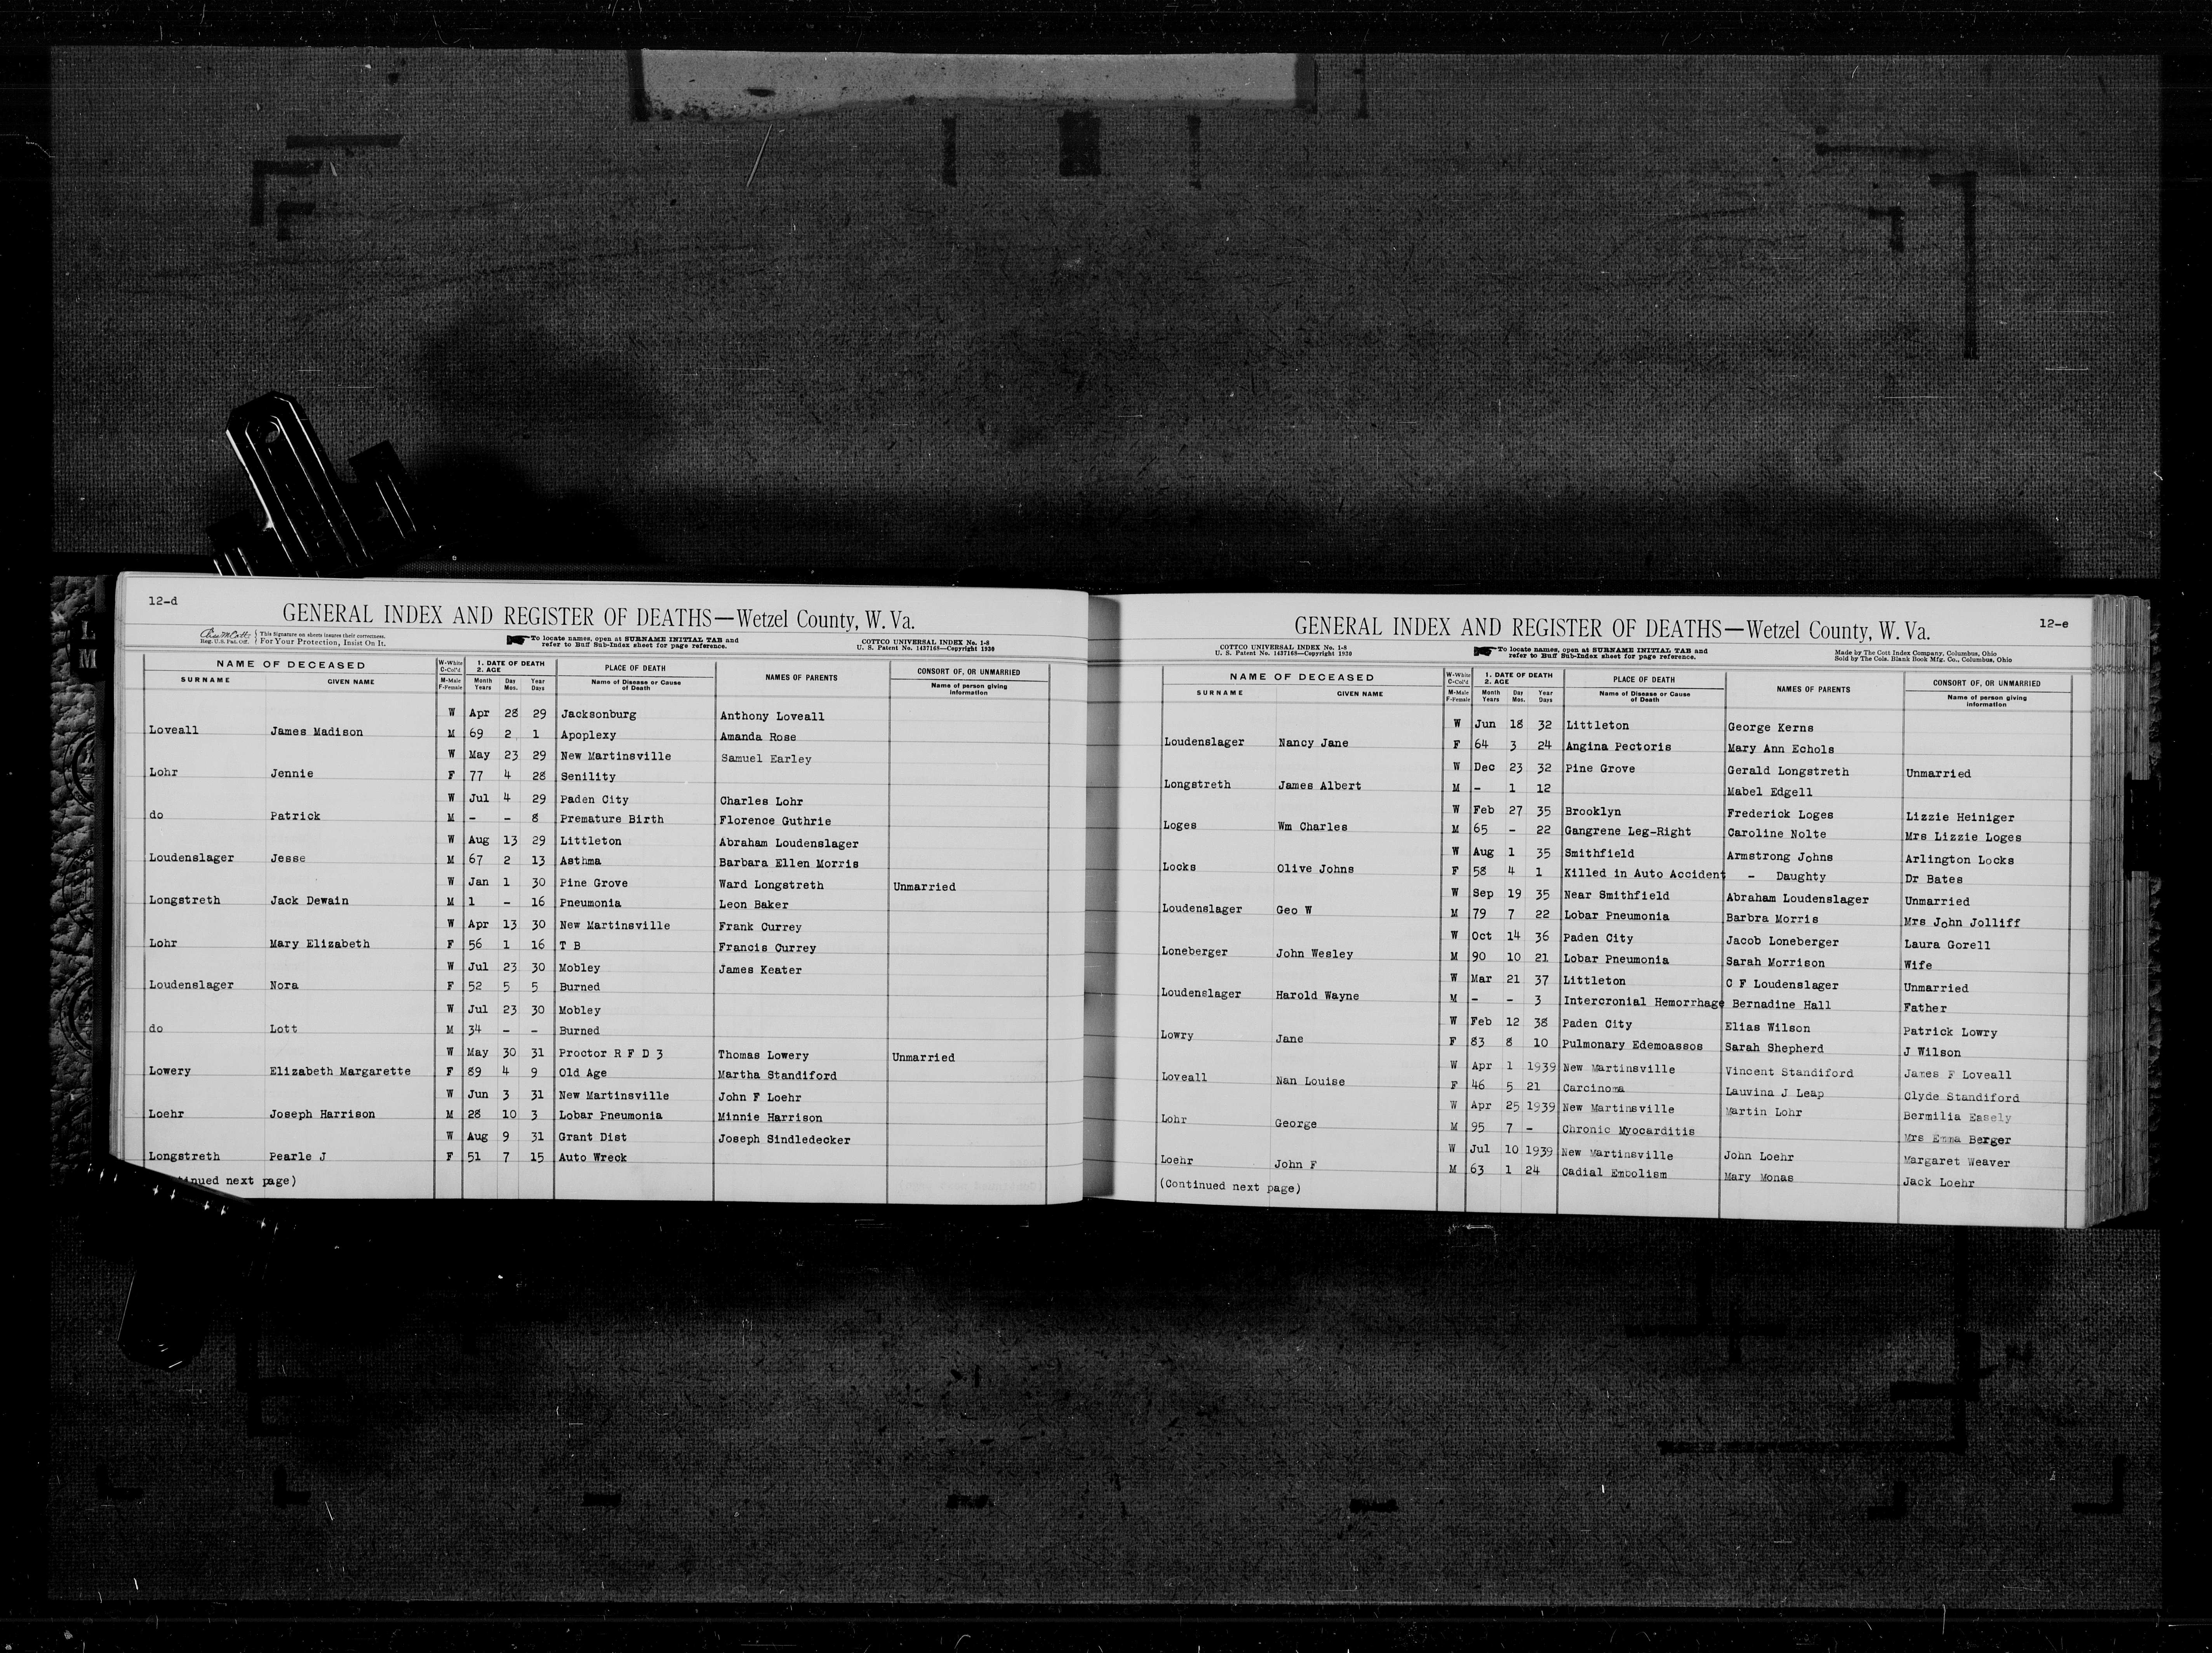 12-d
GENERAL INDEX AND REGISTER OF DEATHS—Wetzel County, W. Va.
Reg. U.S. Pat. Off. This Signature on sheets insures their correctness. For Your Protection, Insist On It.
To locate names, open at SURNAME INITIAL TAB and refer to Buff Sub-Index sheet for page reference.
COTTCO UNIVERSAL INDEX No. 1-8
U. S. Patent No. 1437168—Copyright 1930
NAME OF DECEASED W-White C-Col'd 1. DATE OF DEATH 2. AGE PLACE OF DEATH NAMES OF PARENTS CONSORT OF, OR UNMARRIED
SURNAME GIVEN NAME M-Male F-Female Month Years Day Mos. Year Days Name of Disease or Cause of Death Name of person giving information
W Apr 28 29 Jacksonburg Anthony Loveall
Loveall James Madison M 69 2 1 Apoplexy Amanda Rose
W May 23 29 New Martinsville Samuel Earley
Lohr Jennie F 77 4 28 Senility
W Jul 4 29 Paden City Charles Lohr
do Patrick M - - 8 Premature Birth Florence Guthrie
W Aug 13 29 Littleton Abraham Loudenslager
Loudenslager Jesse M 67 2 13 Asthma Barbara Ellen Morris
W Jan 1 30 Pine Grove Ward Longstreth Unmarried
Longstreth Jack Dewain M 1 - 16 Pneumonia Leon Baker
W Apr 13 30 New Martinsville Frank Currey
Lohr Mary Elizabeth F 56 1 16 T B Francis Currey
W Jul 23 30 Mobley James Keater
Loudenslager Nora F 52 5 5 Burned
W Jul 23 30 Mobley
do Lott M 34 - - Burned
W May 30 31 Proctor R F D 3 Thomas Lowery Unmarried
Lowery Elizabeth Margarette F 89 4 9 Old Age Martha Standiford
W Jun 3 31 New Martinsville John F Loehr
Loehr Joseph Harrison M 28 10 3 Lobar Pneumonia Minnie Harrison
W Aug 9 31 Grant Dist Joseph Sindledecker
Longstreth Pearle J F 51 7 15 Auto Wreck
inued next page)
12-e
GENERAL INDEX AND REGISTER OF DEATHS—Wetzel County, W. Va.
COTTCO UNIVERSAL INDEX No. 1-8
U. S. Patent No. 1437168—Copyright 1930
To locate names, open at SURNAME INITIAL TAB and refer to Buff Sub-Index sheet for page reference.
Made by The Cott Index Company, Columbus, Ohio
Sold by The Cols. Blank Book Mfg. Co., Columbus, Ohio
NAME OF DECEASED W-White C-Col'd 1. DATE OF DEATH 2. AGE PLACE OF DEATH NAMES OF PARENTS CONSORT OF, OR UNMARRIED
SURNAME GIVEN NAME M-Male F-Female Month Years Day Mos. Year Days Name of Disease or Cause of Death Name of person giving information
W Jun 18 32 Littleton George Kerns
Loudenslager Nancy Jane F 64 3 24 Angina Pectoris Mary Ann Echols
W Dec 23 32 Pine Grove Gerald Longstreth Unmarried
Longstreth James Albert M - 1 12 Mabel Edgell
W Feb 27 35 Brooklyn Frederick Loges Lizzie Heiniger
Loges Wm Charles M 65 - 22 Gangrene Leg-Right Caroline Nolte Mrs Lizzie Loges
W Aug 1 35 Smithfield Armstrong Johns Arlington Locks
Locks Olive Johns F 58 4 1 Killed in Auto Accident - Daughty Dr Bates
W Sep 19 35 Near Smithfield Abraham Loudenslager Unmarried
Loudenslager Geo W M 79 7 22 Lobar Pneumonia Barbra Morris Mrs John Jolliff
W Oct 14 36 Paden City Jacob Loneberger Laura Gorell
Loneberger John Wesley M 90 10 21 Lobar Pneumonia Sarah Morrison Wife
W Mar 21 37 Littleton C F Loudenslager Unmarried
Loudenslager Harold Wayne M - - 3 Intercronial Hemorrhage Bernadine Hall Father
W Feb 12 38 Paden City Elias Wilson Patrick Lowry
Lowry Jane F 83 8 10 Pulmonary Edemoassos Sarah Shepherd J Wilson
W Apr 1 1939 New Martinsville Vincent Standiford James F Loveall
Loveall Nan Louise F 46 5 21 Carcinoma Lauvina J Leap Clyde Standiford
W Apr 25 1939 New Martinsville Martin Lohr Bermilia Easely
Lohr George M 95 7 - Chronic Myocarditis Mrs Emma Berger
W Jul 10 1939 New Martinsville John Loehr Margaret Weaver
Loehr John F M 63 1 24 Cadial Embolism Mary Monas Jack Loehr
(Continued next page)
L
M